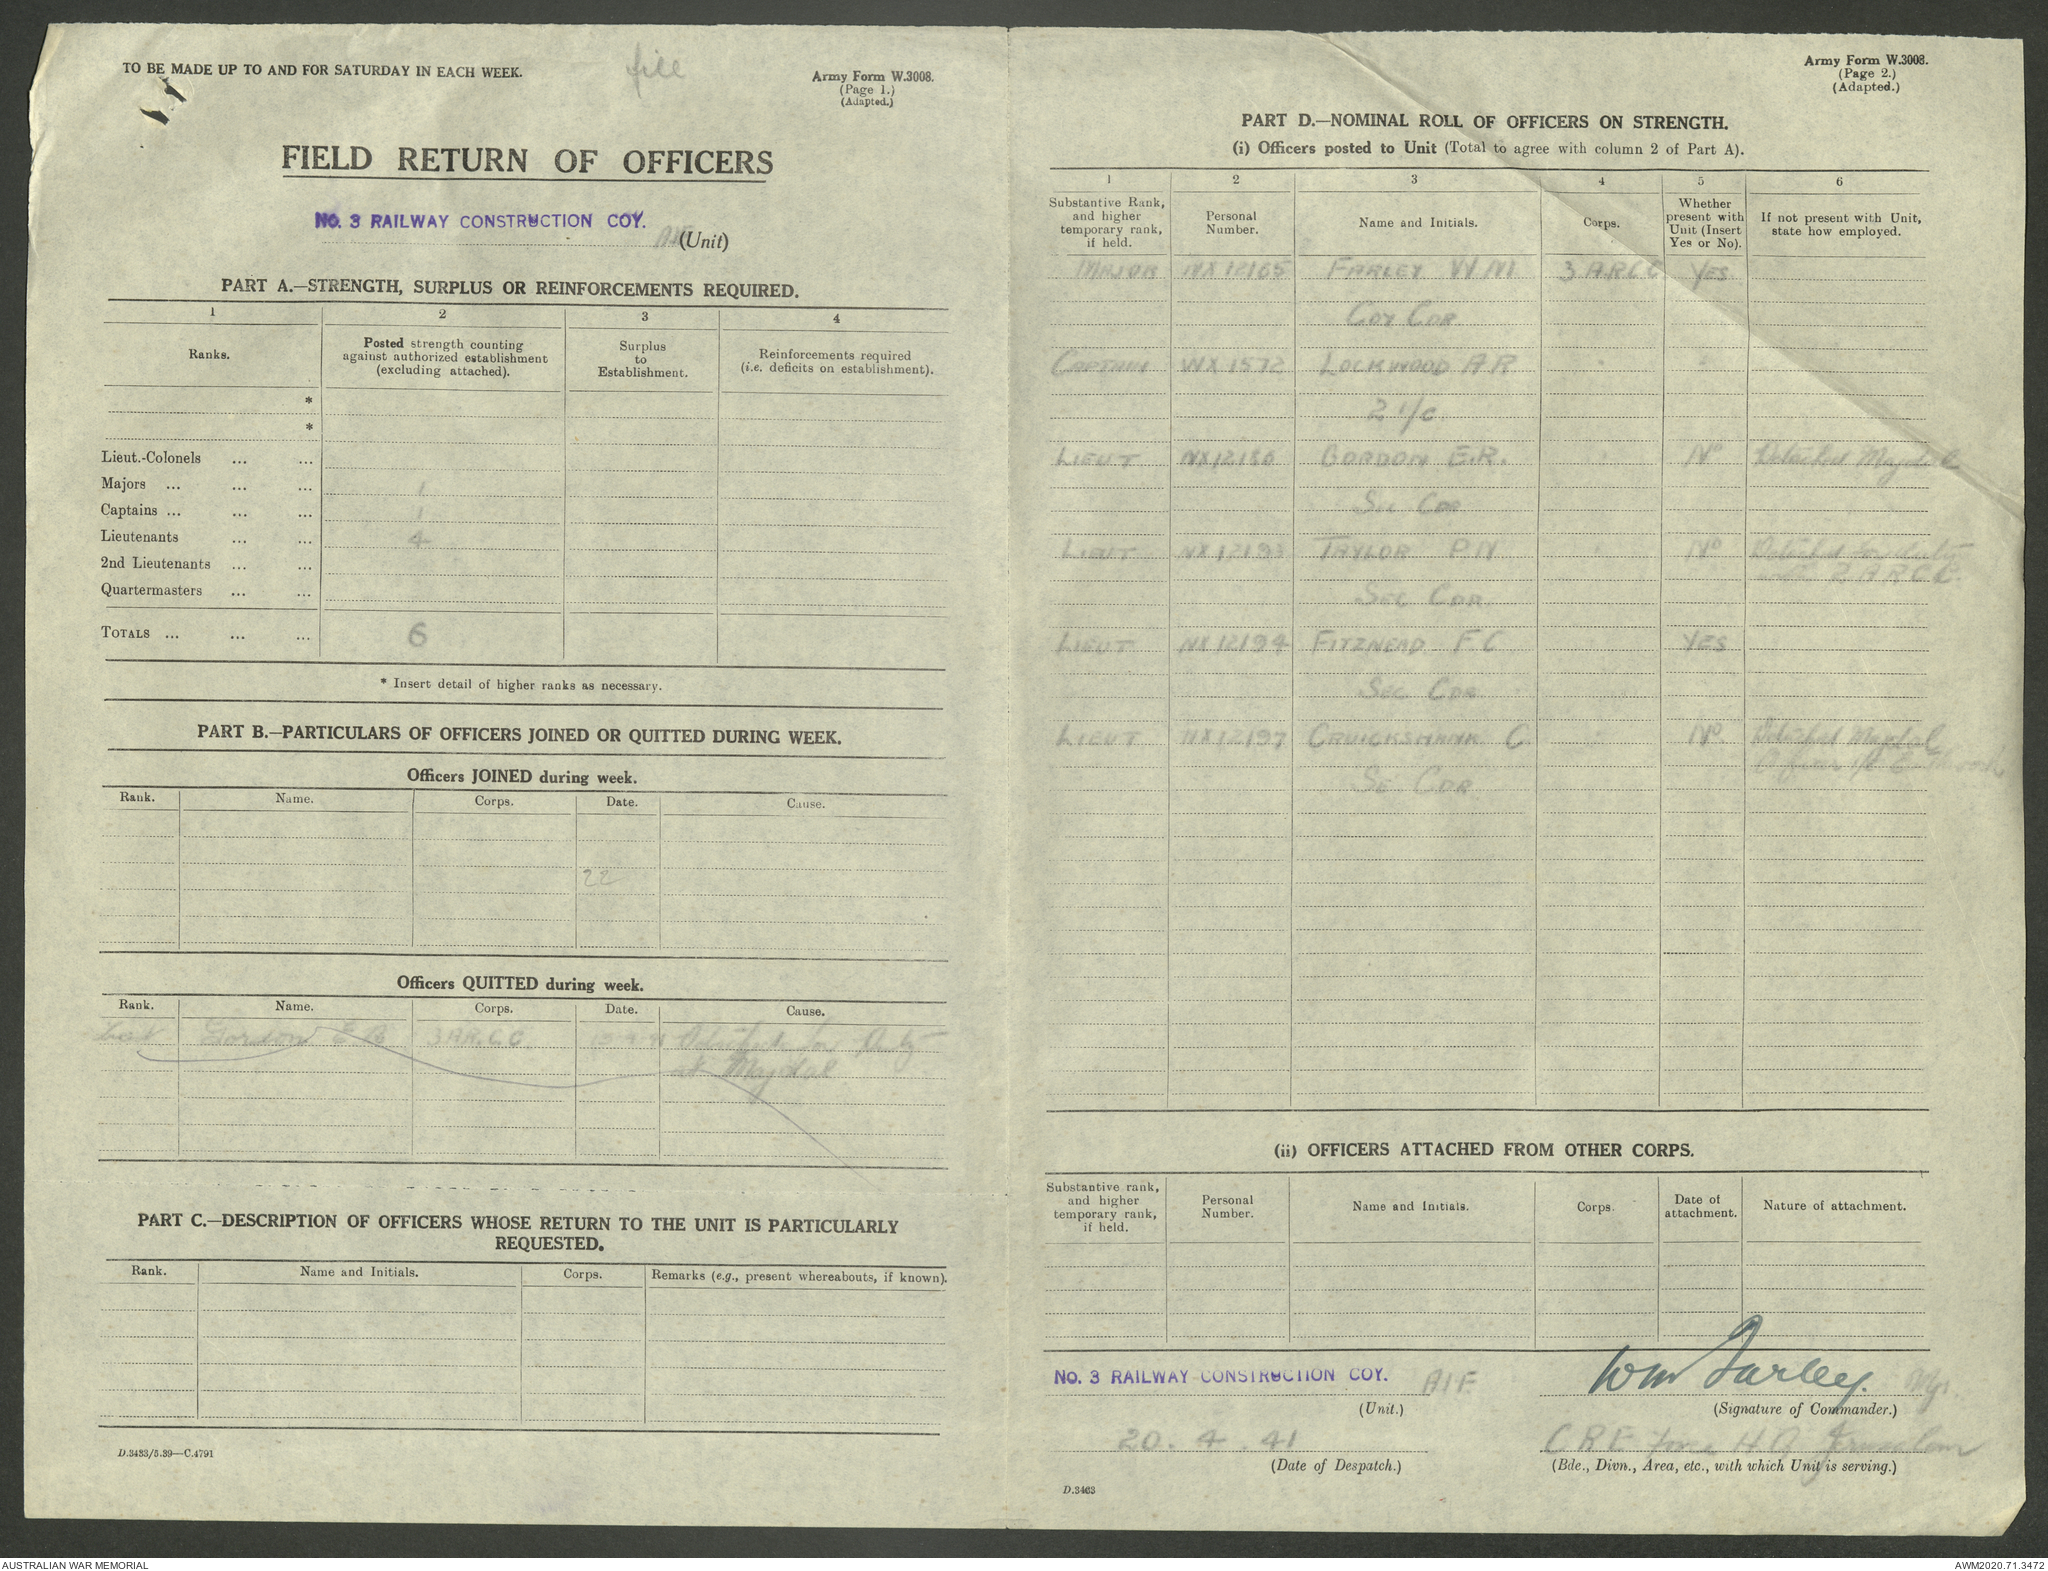 TO BE MADE UP TO AND FOR SATURDAY IN EACH WEEK.
file
Army Form W.3008.
(Page 1.)
(Adapted.)
FIELD RETURN OF OFFICERS
NO. 3 RAILWAY CONSTRUCTION COY.
AIF (Unit)
PART A.—STRENGTH, SURPLUS OR REINFORCEMENTS REQUIRED.
1 2 3 4
Ranks. Posted strength counting against authorized establishment (excluding attached). Surplus to Establishment. Reinforcements required (i.e. deficits on establishment).
*
*
Lieut.-Colonels ... ...
Majors ... ... ... 1
Captains ... ... ... 1
Lieutenants ... ... 4
2nd Lieutenants ... ...
Quartermasters ... ...
TOTALS ... ... ... 6
* Insert detail of higher ranks as necessary.
PART B.—PARTICULARS OF OFFICERS JOINED OR QUITTED DURING WEEK.
Officers JOINED during week.
Rank. Name. Corps. Date. Cause.
22
Officers QUITTED during week.
Rank. Name. Corps. Date. Cause.
Gordon E R 3 A.R.C.C. Detached for Duty
at Majdal
PART C.—DESCRIPTION OF OFFICERS WHOSE RETURN TO THE UNIT IS PARTICULARLY
REQUESTED.
Rank. Name and Initials. Corps. Remarks (e.g., present whereabouts, if known).
D.3433/5.39—C.4791
Army Form W.3008.
(Page 2.)
(Adapted.)
PART D.—NOMINAL ROLL OF OFFICERS ON STRENGTH.
(i) Officers posted to Unit (Total to agree with column 2 of Part A).
1 2 3 4 5 6
Substantive Rank, and higher temporary rank, if held. Personal Number. Name and Initials. Corps. Whether present with Unit (Insert Yes or No). If not present with Unit, state how employed.
MAJOR NX12165 FARLEY W M 3 ARCC YES
COY CDR
CAPTAIN WX1572 LOCKWOOD A R " "
2 I/C
LIEUT NX12186 GORDON E.R. " NO Detached Majdal
Sec CDR
LIEUT NX12193 TAYLOR P N " NO Detached for duty
with 2 ARCC
SEC CDR
LIEUT NX12194 FITZNEAD F C YES
SEC CDR
LIEUT NX12197 CRUICKSHANK C " NO Detached Majdal
SE CDR
(ii) OFFICERS ATTACHED FROM OTHER CORPS.
Substantive rank, and higher temporary rank, if held. Personal Number. Name and Initials. Corps. Date of attachment. Nature of attachment.
NO. 3 RAILWAY CONSTRUCTION COY. AIF
(Unit.)
Wm Farley. Mjr.
(Signature of Commander.)
20.4.41
(Date of Despatch.)
CRE Force HQ Jerusalem
(Bde., Divn., Area, etc., with which Unit is serving.)
D.3463
AUSTRALIAN WAR MEMORIAL
AWM2020.71.3472